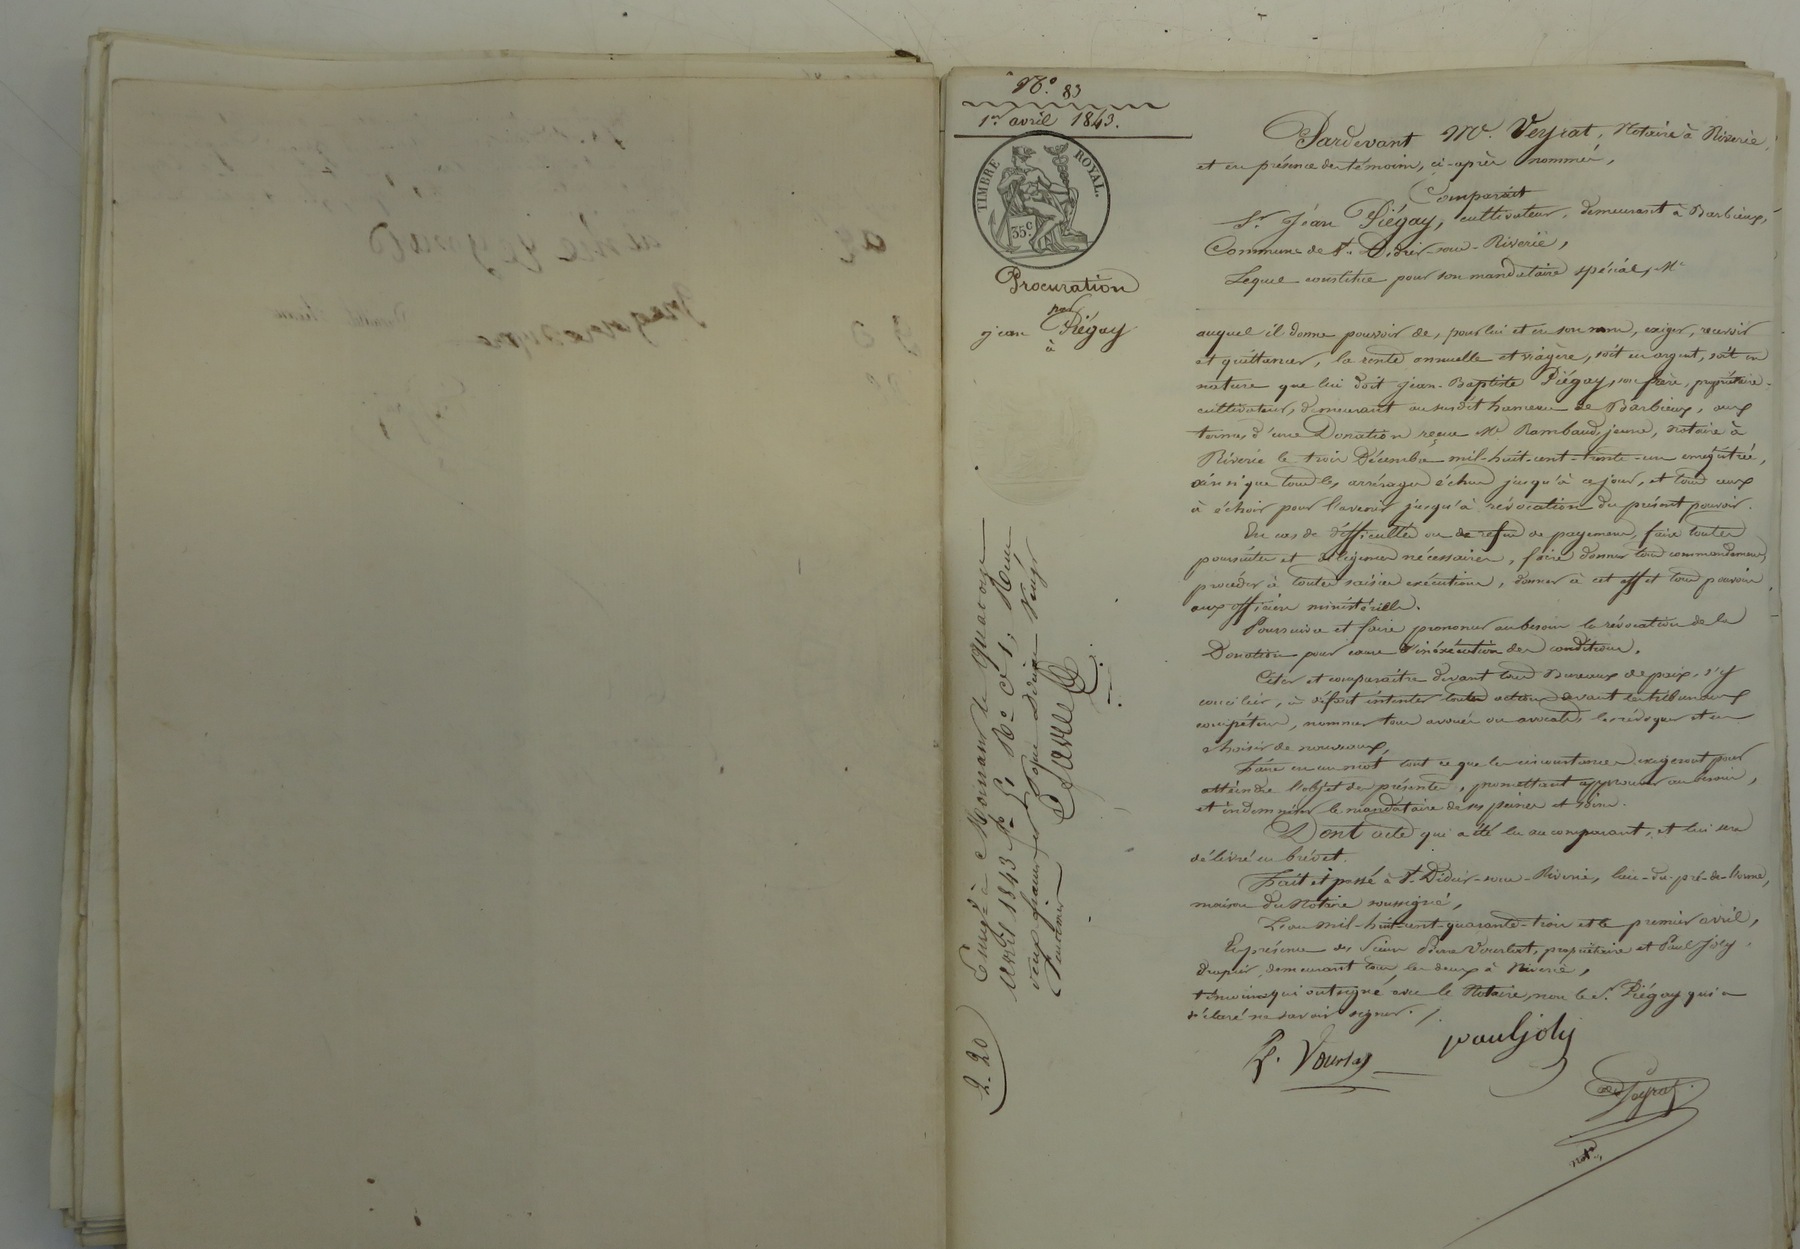 N.° 83
1er avril 1843.
TIMBRE ROYAL.
35.c
Procuration
par
jean Piégay
à
Pardevant Me. Veyrat, Notaire à Riverie,
et en présence des témoins, ci-après nommés,
Comparait
Sr. Jéan Piégay, cultivateur, demeurant à Barbieux,
Commune de St. Didier-sous-Riverie,
Lequel constitue pour son mandataire spécial, Me
auquel il donne pouvoir de, pour lui et en son nom, exiger, recevoir
et quittancer, la rente annuelle et viagère, soit en argent, soit en
nature que lui doit jean-Baptiste Piégay, son frère, propriétaire-
cultivateur, demeurant au susdit hameau de Barbieux, aux
termes d'une Donation reçue Me Rambaud, jeune, notaire à
Riverie le trois Décembre mil-huit-cent-trente-un enregistrée,
ainsi que tous les arrérages échus jusqu'à ce jour, et tous ceux
à échoir pour l'avenir jusqu'à révocation du présent pouvoir.
En cas de difficultés ou de refus de payement, faire toutes
poursuites et diligences nécessaires, faire donner tous commandements,
procéder à toutes saisies exécutions, donner à cet effet tous pouvoirs
aux officiers ministériels.
Poursuivre et faire prononcer au besoin la révocation de la
Donation pour cause d'inéxécution des conditions.
Citer et comparaitre devant tous Bureaux de paix, s'y
concilier, à défaut intenter toutes actions devant les tribunaux
compétens, nommer tous avoués ou avocats, les révoquer et en
choisir de nouveaux,
Faire en un mot tout ce que les circonstances exigeront pour
atteindre l'objet des présentes, promettant approuver au besoin,
et indemniser le mandataire de ses peines et soins.
Dont acte qui a été lu au comparant, et lui sera
délivré en brévet.
Fait et passé à St. Didier-sous-Riverie, lieu-du-pré-de-
maison du Notaire soussigné,
L'an mil-huit-cent-quarante-trois et le premier avril,
En présence des Sieurs Pierre Vourlat, propriétaire et Paul Joly,
drapier, demeurant tous les deux à Riverie,
témoins qui ont signé avec le Notaire, non le Sr. Piégay qui a
déclaré ne savoir signer. /.
P. Vourlat
paul joly
Veyrat
notre
Enregé à Mornant le quatorze
Avril 1843 fo 51 Ro c. 1; Reçu
deux francs et pour dixième vingt
centimes
2-20